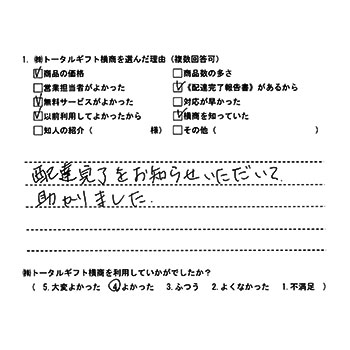 1. ㈱トータルギフト横商を選んだ理由（複数回答可）
☑商品の価格 □商品数の多さ
□営業担当者がよかった ☑《配達完了報告書》があるから
☑無料サービスがよかった □対応が早かった
☑以前利用してよかったから ☑横商を知っていた
□知人の紹介（ 様） □その他（ ）
配達完了をお知らせいただいて、
助かりました.
㈱トータルギフト横商を利用していかがでしたか？
（ 5.大変よかった ④よかった 3.ふつう 2.よくなかった 1.不満足 ）